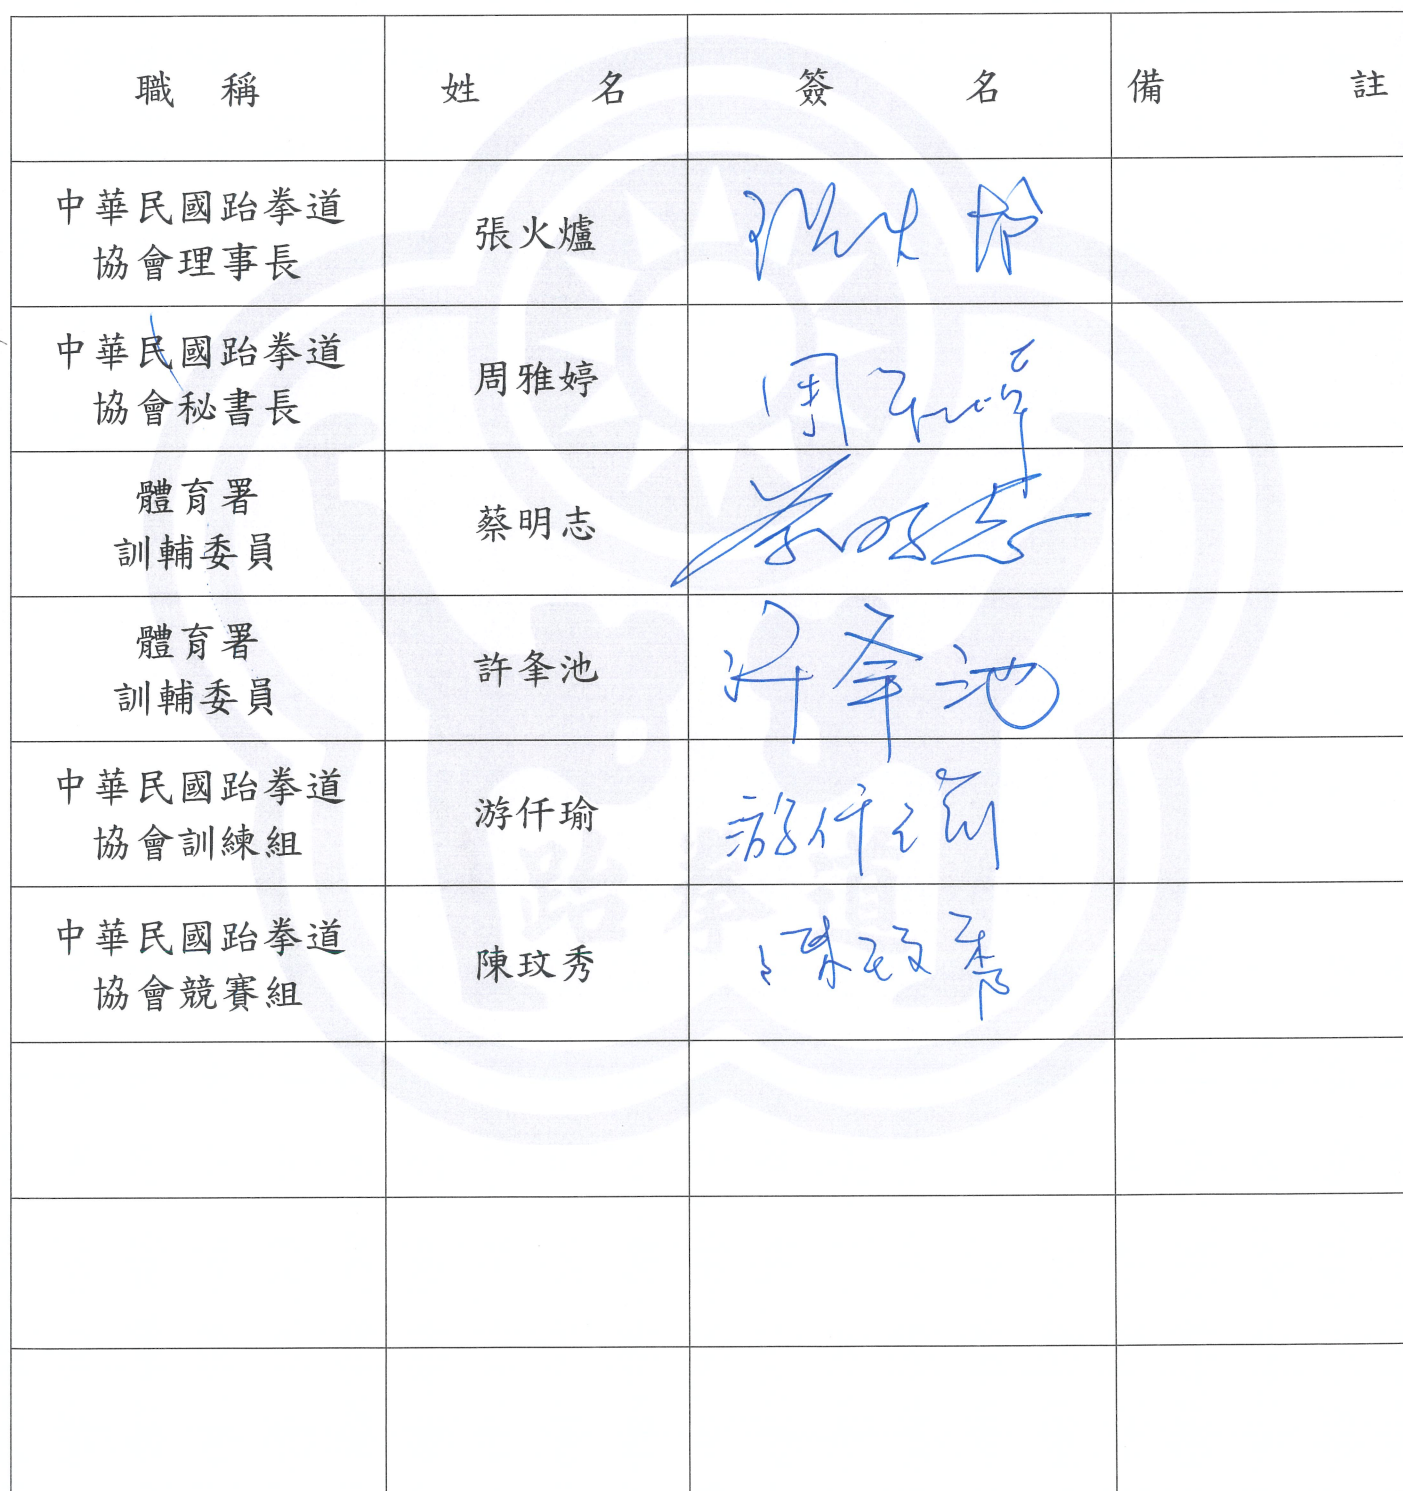 職稱 姓名 簽名 備註
中華民國跆拳道
協會理事長
張火爐 張火爐
中華民國跆拳道
協會秘書長
周雅婷 周雅婷
體育署
訓輔委員
蔡明志 蔡明志
體育署
訓輔委員
許夆池 許夆池
中華民國跆拳道
協會訓練組
游仟瑜 游仟瑜
中華民國跆拳道
協會競賽組
陳玟秀 陳玟秀
跆拳道